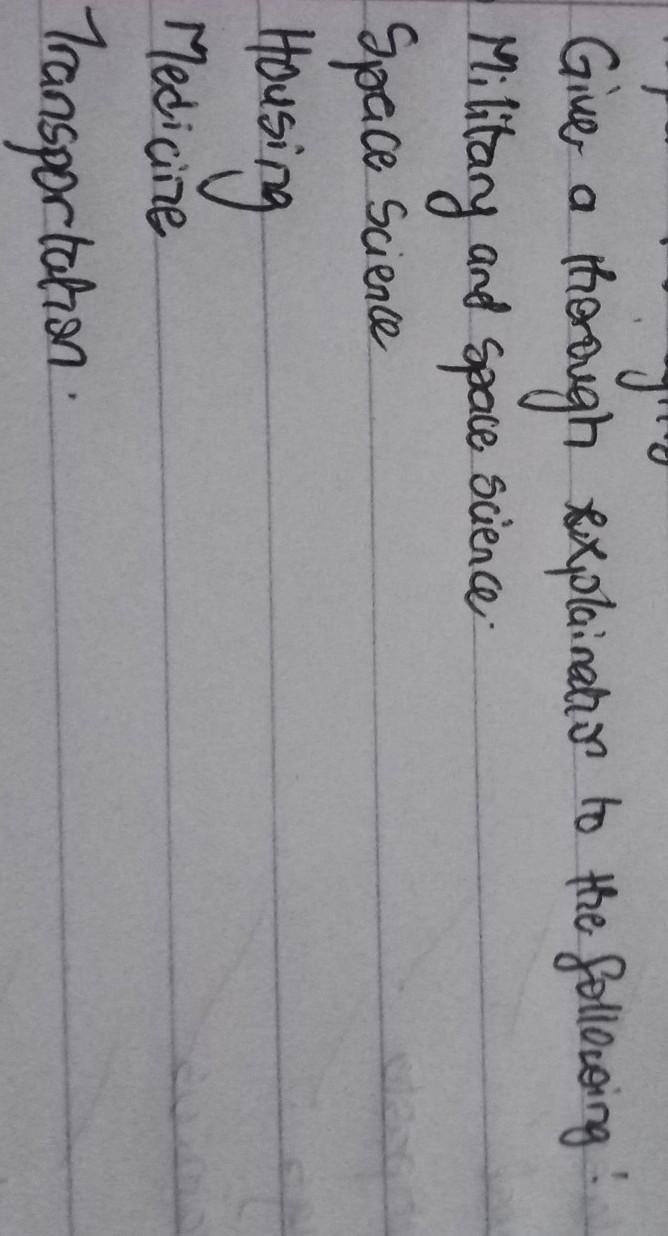 Give a thorough explaination to the following:
Military and space science.
Space Science
Housing
Medicine
Transportation.